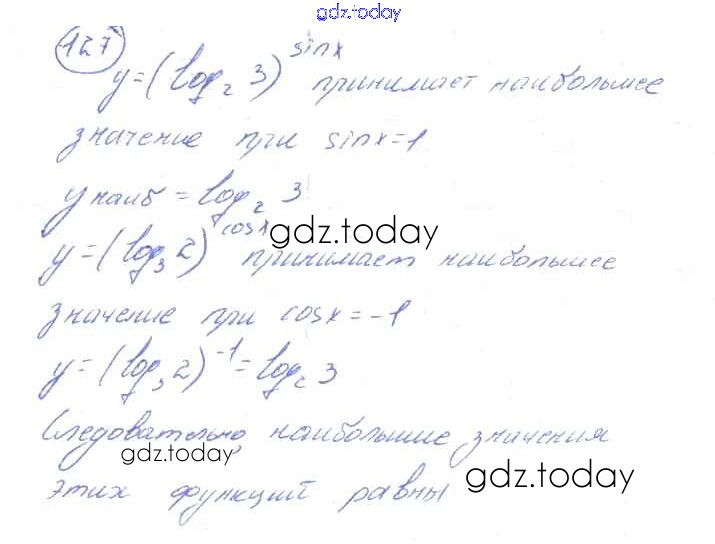 gdz.today
127
y=(log₂ 3)^sinx принимает наибольшее
значение при sinx=1
y наиб = log₂ 3
y=(log₃ 2)^cosx принимает наибольшее
gdz.today
значение при cosx=-1
y=(log₃ 2)^-1 = log₂ 3
Следовательно, наибольшие значения
gdz.today
этих функций равны
gdz.today